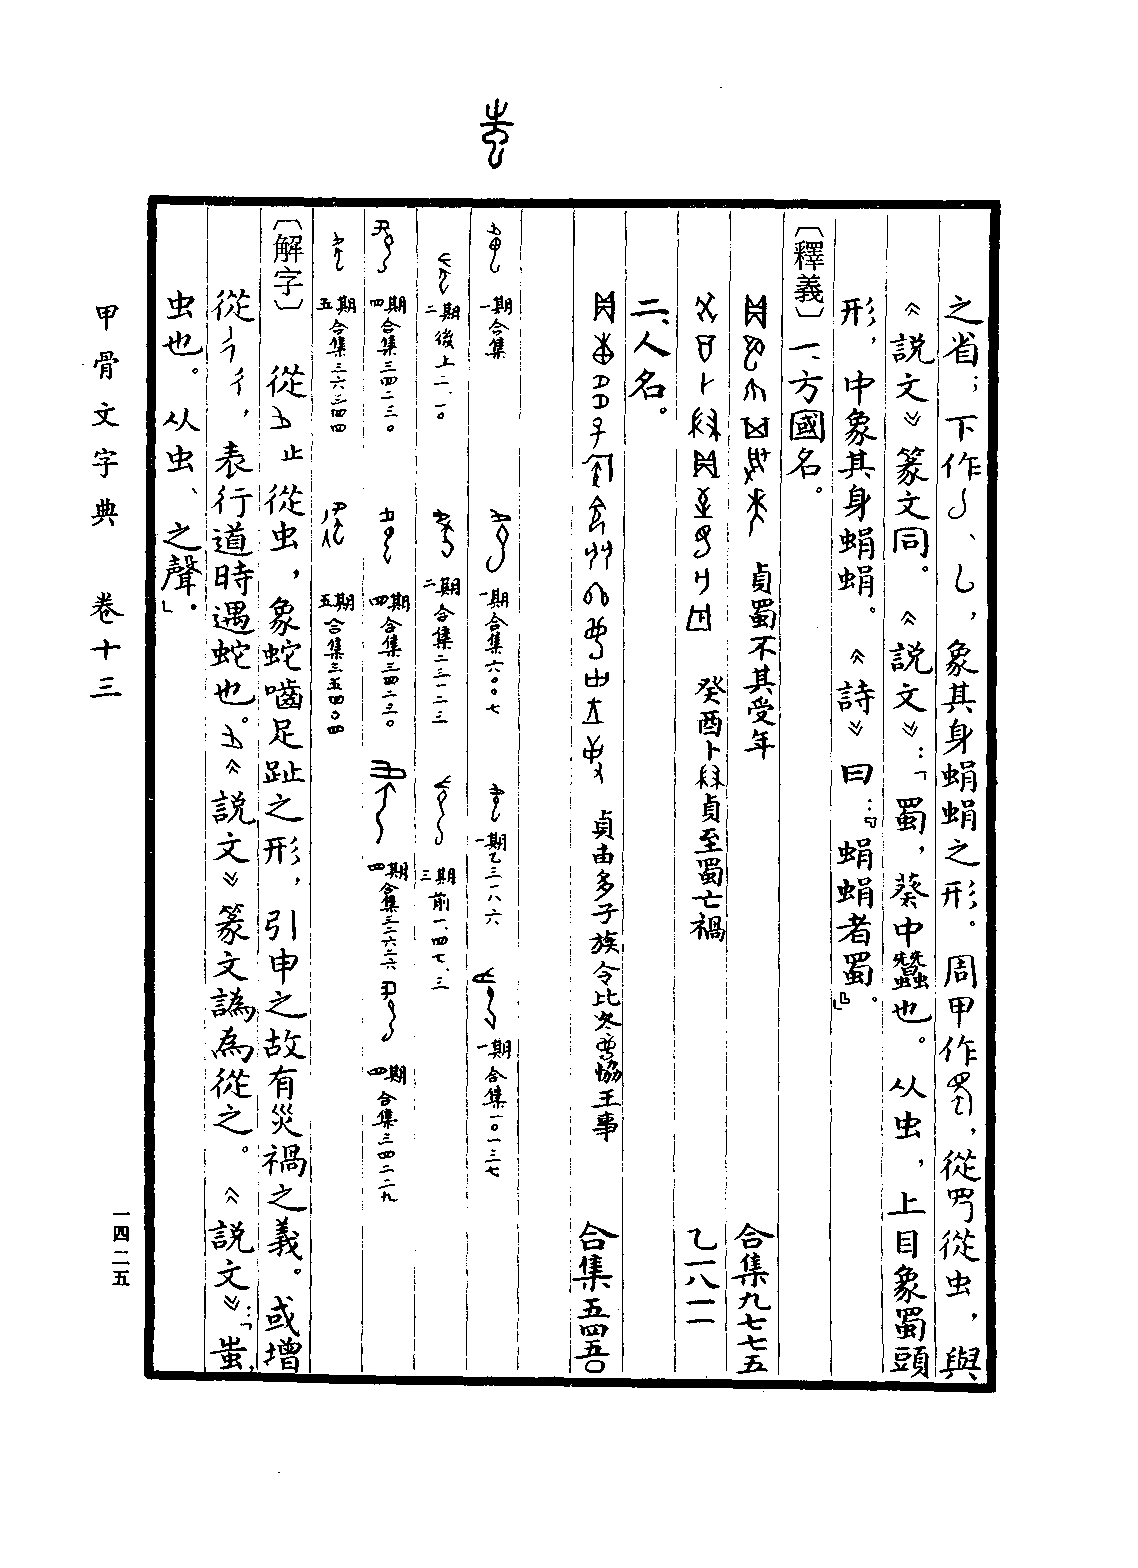 之省；下作、，象其身蜎蜎之形。周甲作，從從虫，與
《說文》篆文同。《說文》：「蜀，葵中蠶也。从虫，上目象蜀頭
形，中象其身蜎蜎。《詩》曰：『蜎蜎者蜀』。
〔釋義〕一、方國名。
貞蜀不其受年 合集九七七五
癸酉卜貞至蜀亡禍 乙一八一一
二、人名。
貞由多子族令比协王事 合集五四五〇
一期合集 一期合集六〇〇七 一期乙三一八六 一期合集一〇一三七
二期後上二、一〇 二期合集二三一二三 三期前一、四七、三
四期合集三四二三〇 四期合集三四二三〇 四期合集三二六二六 四期合集三四二二九
五期合集三六三四四 五期合集三五四〇四
〔解字〕 從止從虫，象蛇嚙足趾之形，引申之故有災禍之義。或增
從彳，表行道時遇蛇也。《說文》篆文譌為從之。《說文》：「蚩，
虫也。从虫、之聲。」
甲骨文字典 卷十三
一四二五